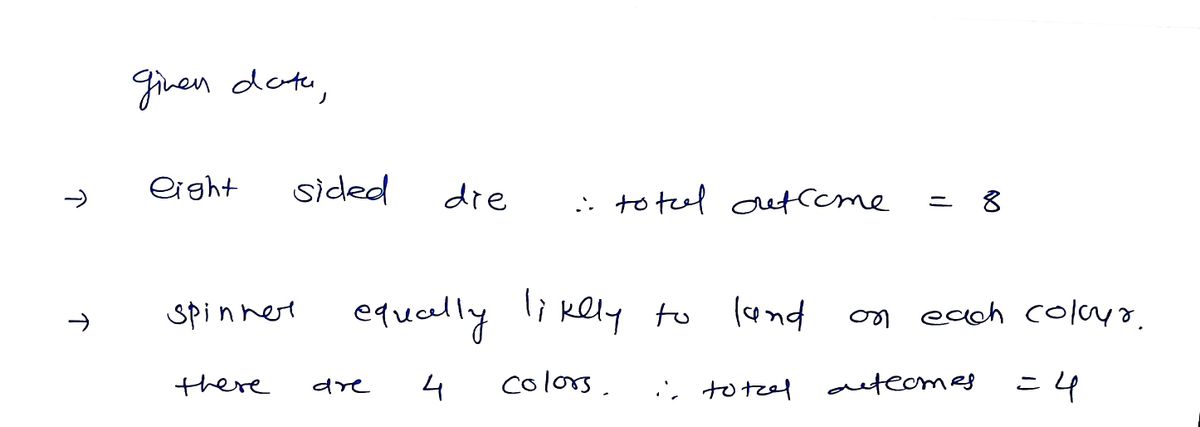 given data,
→ eight sided die ∴ total outcome = 8
→ spinner equally likely to land on each colour.
there are 4 colors. ∴ total outcomes = 4